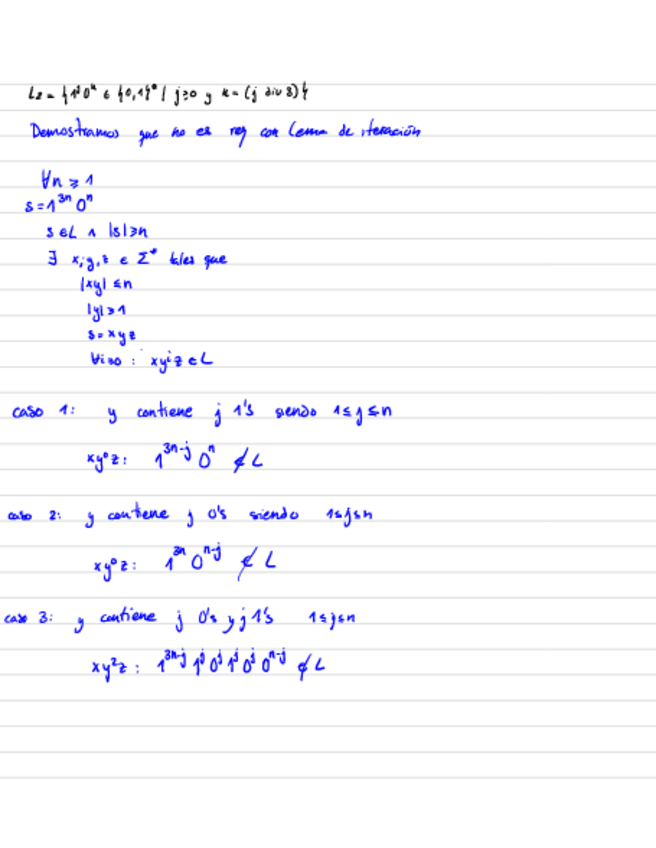 L₂ = {1ʲ0ᵏ ∈ {0,1}* | j≥0 y k = (j div 3)}
Demostramos que no es reg con Lema de iteración
∀n ≥ 1
s = 1³ⁿ 0ⁿ
s ∈ L ∧ |s| ≥ n
∃ x, y, z ∈ Σ* tales que
|xy| ≤ n
|y| ≥ 1
s = xyz
∀i≥0 : xyⁱz ∈ L
caso 1: y contiene j 1's siendo 1 ≤ j ≤ n
xy⁰z: 1³ⁿ⁻ʲ 0ⁿ ∉ L
caso 2: y contiene j 0's siendo 1≤j≤n
xy⁰z: 1³ⁿ 0ⁿ⁻ʲ ∉ L
caso 3: y contiene j 0's y j 1's 1≤j≤n
xy²z: 1³ⁿ⁻ʲ 1ʲ 0ʲ 1ʲ 0ʲ 0ⁿ⁻ʲ ∉ L